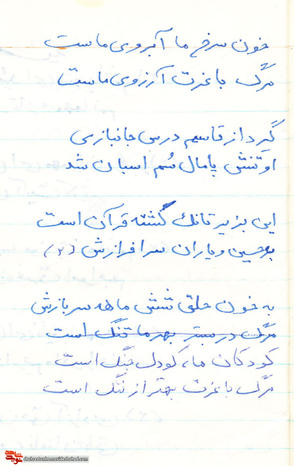 خون سرخ ما آبروی ماست
مرگ با عزت آرزوی ماست
گیرد از قاسم درس جانبازی
او تنش پامال سُم اسبان شد
این بزیر تانک گشته قرآن است
بر حسین و یاران سرافرازش (۲)
به خون حلق شش ماهه سربازش
مرگ در بستر بهر ما ننگ است
کودکان ما، کودک جنگ است
مرگ با عزت بهتر از ننگ است